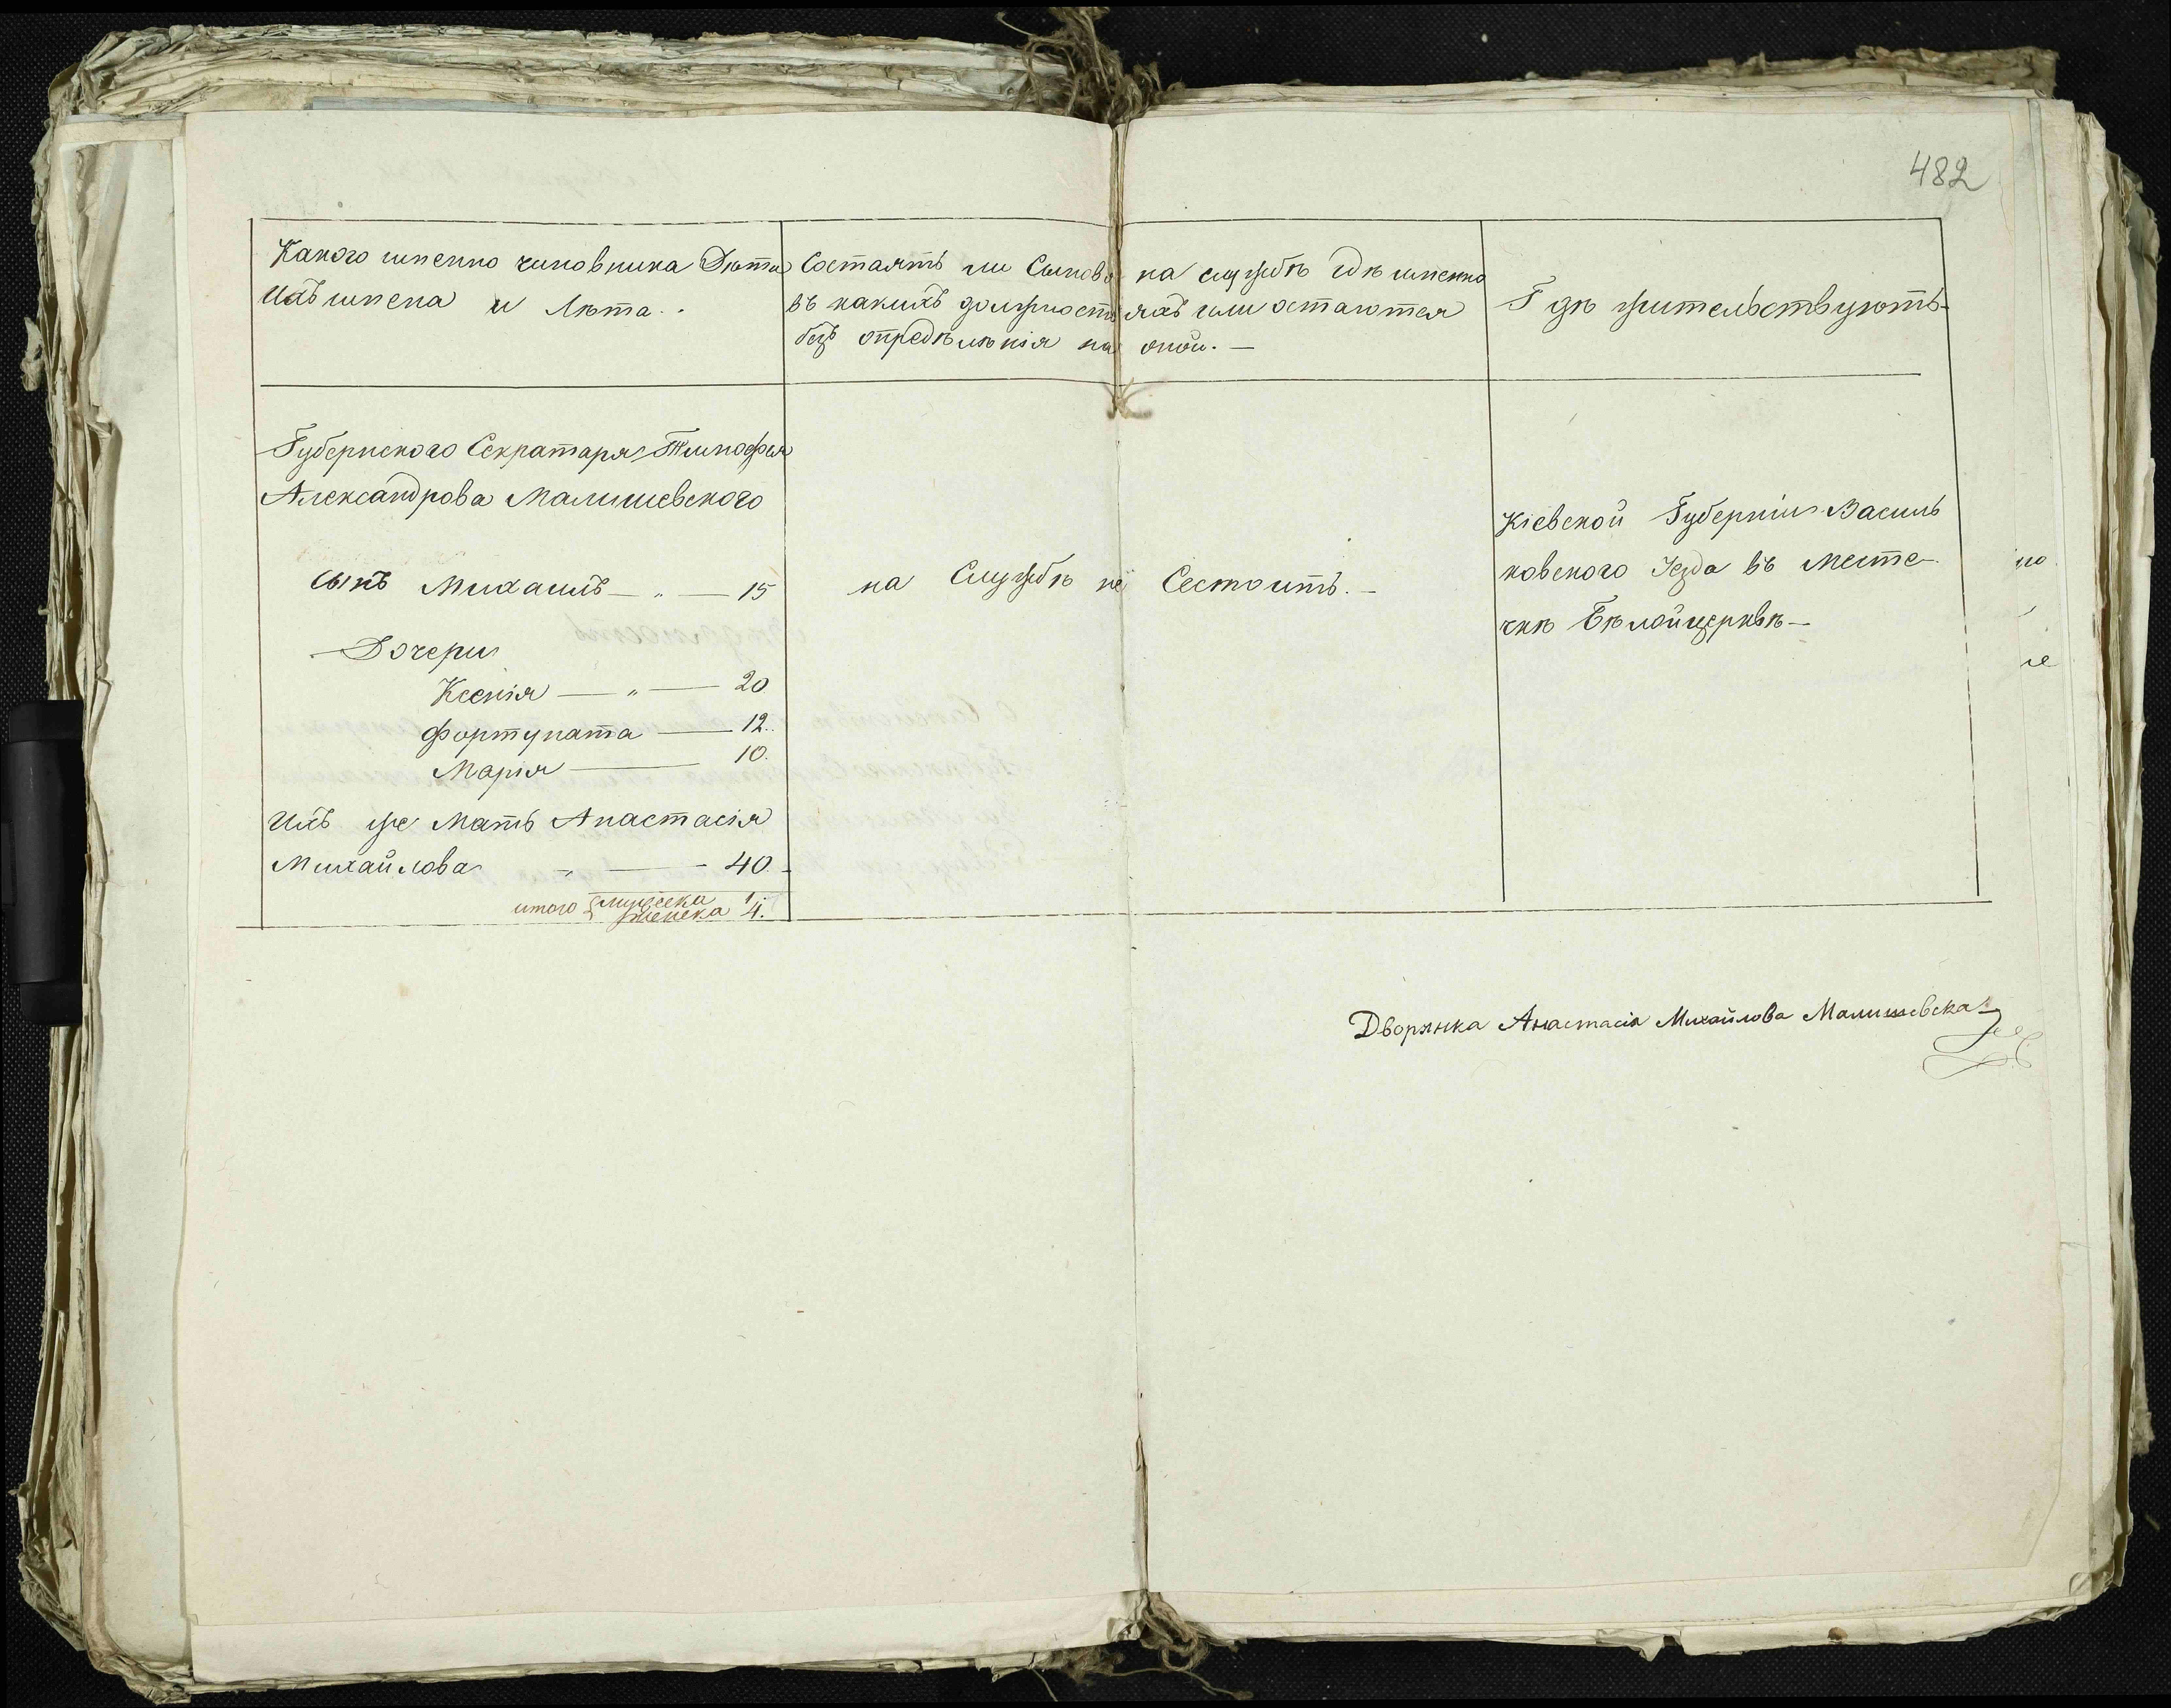 482
Какого имепно чиновника Дѣти
Ихъ имена и Лѣта..
Состаятъ ли Сыновя на службѣ гдѣ имепно
въ какихъ должностяхъ или остаются
безъ опредѣлѣнія на оной.—
Гдѣ жительствуютъ—
Губернского Секратаря Тимофея
Александрова Малишевского
сынъ Михаилъ — „ — 15
Дочери
Ксенія — „ — 20
Фортуната — 12.
Марія — 10.
Ихъ же Мать Анастасія
Михайлова „ — 40.
итого { мужеска 1
женска 4.
на Службѣ не Сестоитъ.—
Кіевской Губерніи Василь
ковского Уезда въ месте-
чкѣ Бѣлойцерквѣ—
Дворянка Анастасія Михайлова Малишевская